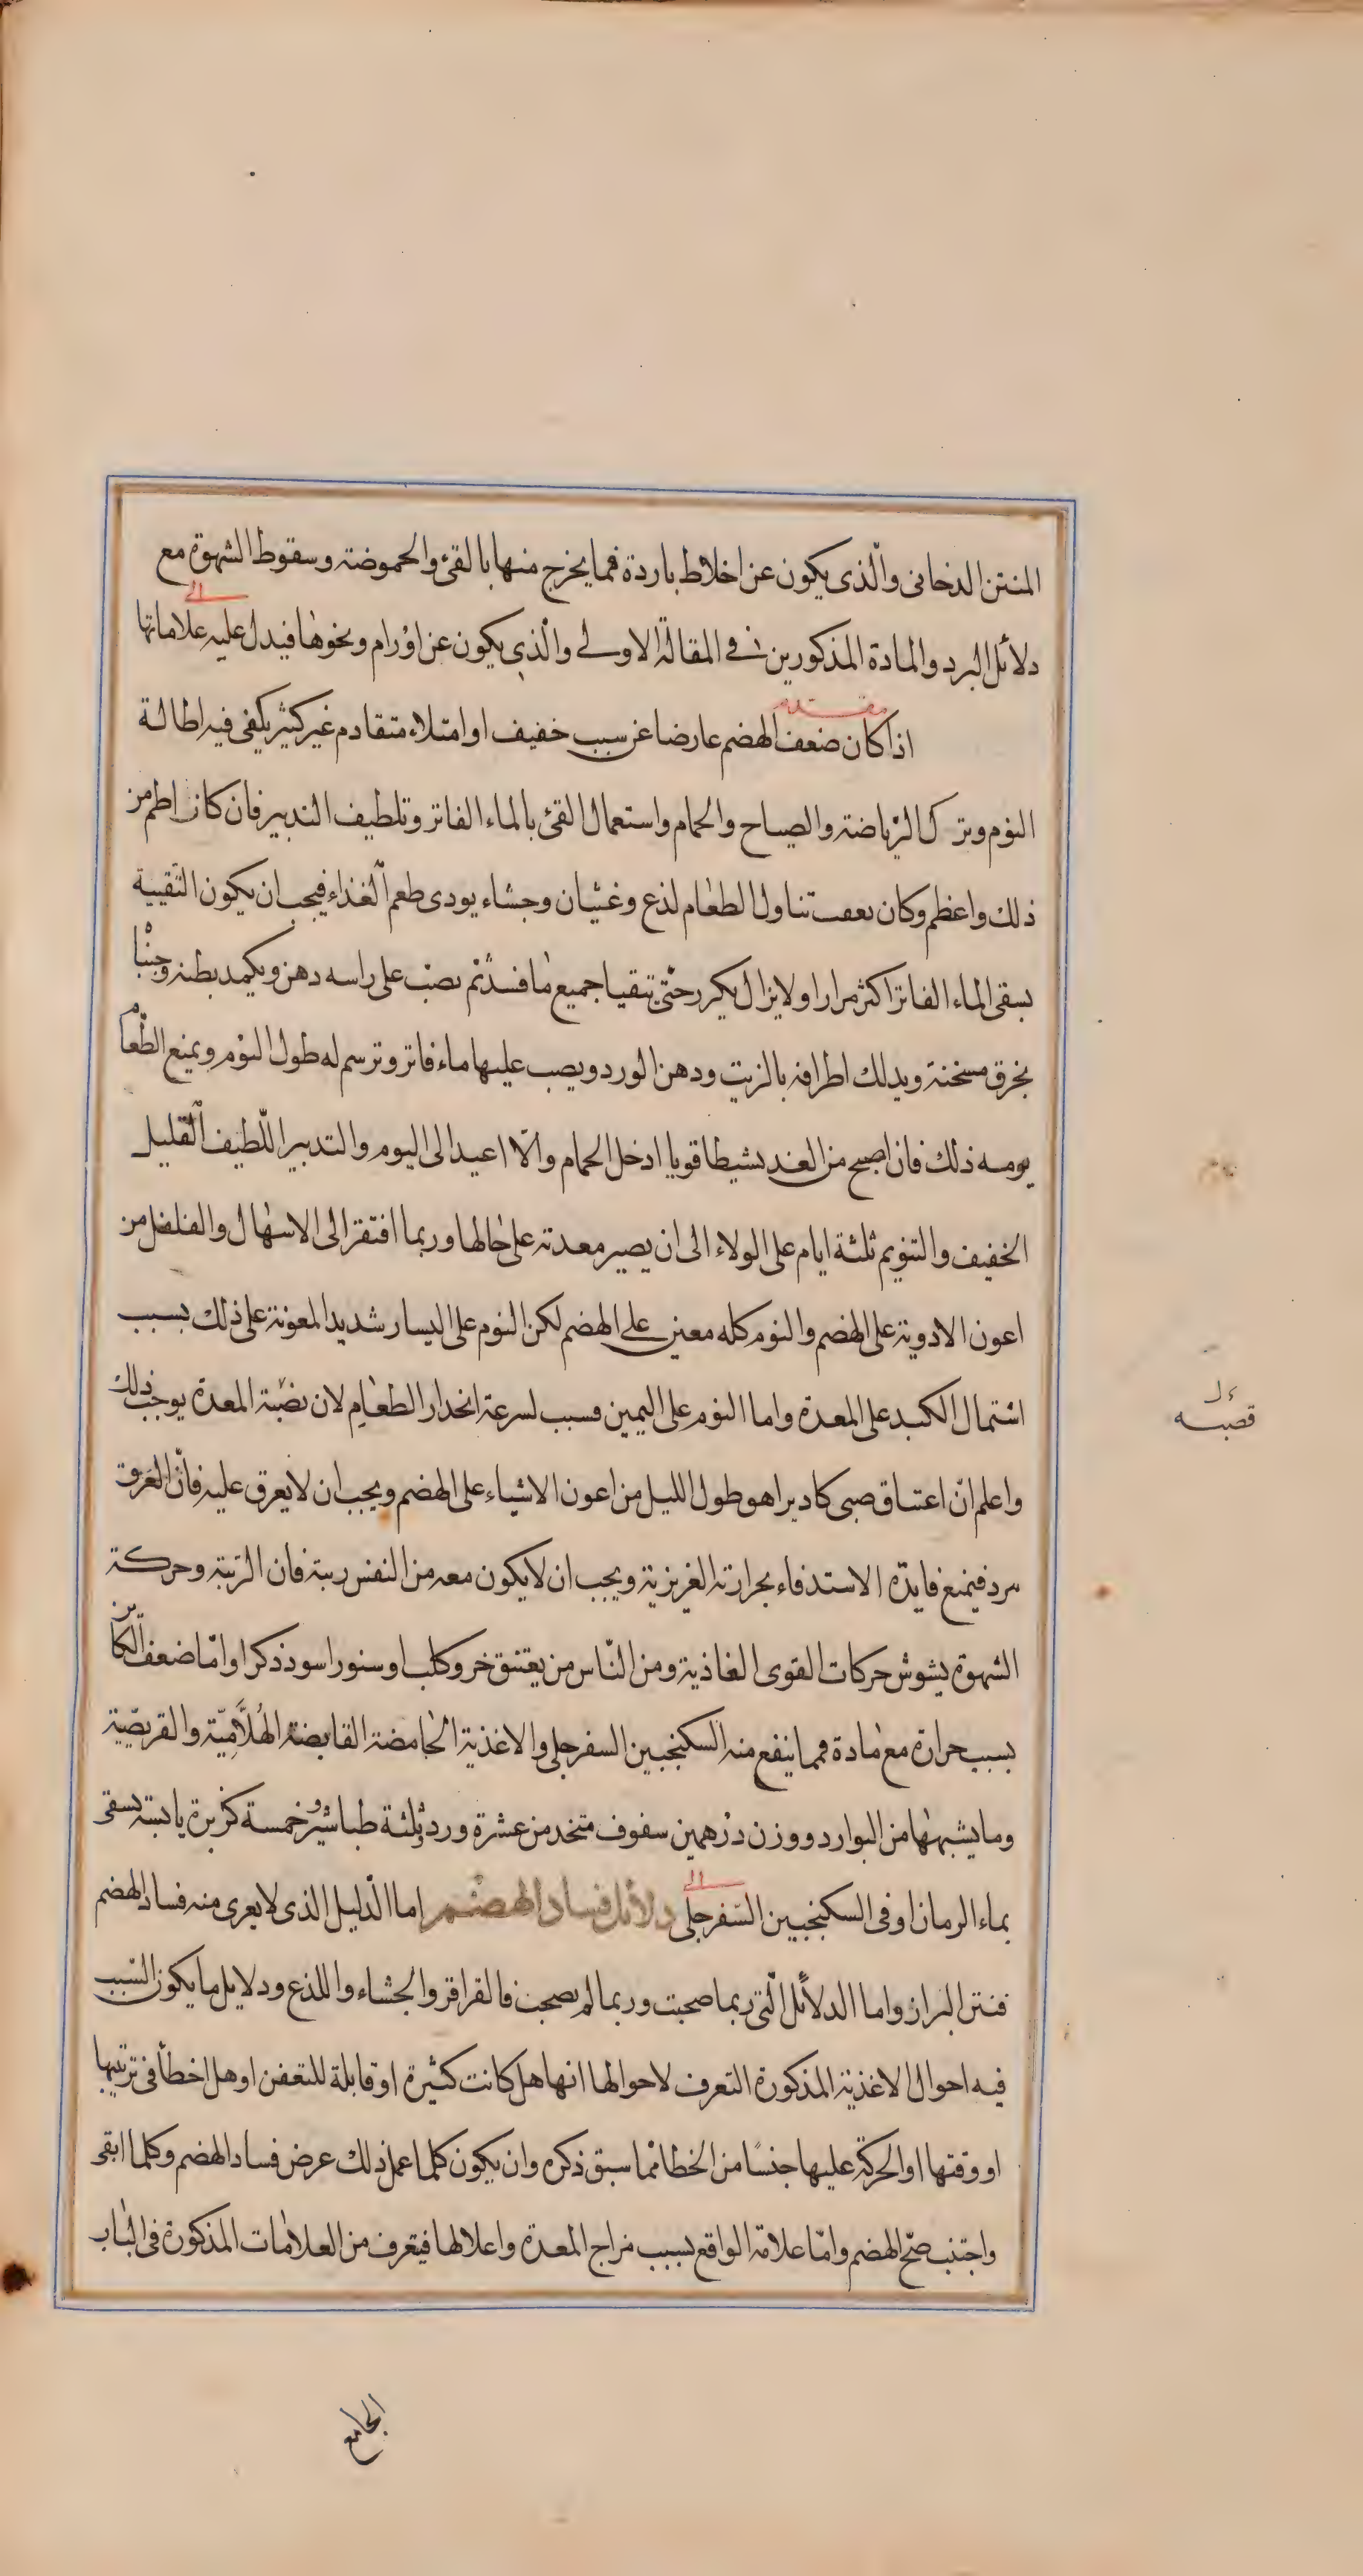 المنتن الدخانى والّذى يكون عن اخلاط باردة فمما يخرج منها بالقئ والحموضة وسقوط الشهوة مع
دلائل البرد والمادة المذكورين فى المقالة الاولى والّذى يكون عن اورام ونحوها فيدل عليه علاماتها
اذا كان ضعف الهضم عارضا عن سبب خفيف او امتلاء متقادم غير كثير يكفى فيه اطالة
النوم وترك الرياضة والصياح والحمام واستعمال القئ بالماء الفاتر وتلطيف التدبير فان كان اطم من
ذلك واعظم وكان بعقب تناول الطعام لذع وغثيان وجشاء يودى طعم الغذاء فيجب ان يكون التنقية
بسقى الماء الفاتر اكثر مرارا ولا يزال يكرر حتّى يتقيا جميع ما فسد ثم يصبّ على راسه دهن ويكمد بطنه وجنبا
بخرق مسخنة ويدلك اطرافه بالزيت ودهن الورد ويصب عليها ماء فاتر وترسم له طول النوم ويمنع الطعام
يومه ذلك فان اصبح من الغد نشيطا قويا ادخل الحمام والّا اعيد الى اليوم والتدبير اللّطيف القليل
الخفيف والتنويم ثلثة ايام على الولاء الى ان يصير معدته على حالها وربما افتقر الى الاسهال والفلفل من
اعون الادوية على الهضم والنوم كله معين على الهضم لكن النوم على اليسار شديد المعونة على ذلك بسبب
اشتمال الكبد على المعدة واما النوم على اليمين فسبب لسرعة انحدار الطعام لان نصبة المعدة يوجب ذلك
واعلم انّ اعتناق صبى كاد يراهق طول الليل من اعون الاشياء على الهضم ويجب ان لا يعرق عليه فانّ العرق
يبرد فيمنع فايدة الاستدفاء بحرارته الغريزية ويجب ان لا يكون معه من النفس ريبة فان الريبة وحركة
الشهوة يشوش حركات القوى الغاذية ومن النّاس من يعتنق جرو كلب او سنور اسود ذكر او امّا ضعف الكائن
بسبب حرارة مع مادة فمما ينفع منه السكنجبين السفرجلى والاغذية الحامضة القابضة الهُلَامِيّة والقريصية
وما يشبهها من البوارد ووزن درهمين سفوف متخد من عشرة ورد وثلثة طباشير وخمسة كزبرة يابسة يسقى
بماء الرمان او فى السكنجبين السّفرجلى دلائل فساد الهضم اما الدّليل الذى لا يعرى منه فساد الهضم
فنتن البراز واما الدلائل الّتى ربما صحبت وربما لم يصحب فالقراقر والجشاء واللذع ودلايل ما يكون السّبب
فيه احوال الاغذية المذكورة التعرف لاحوالها انها هل كانت كثيرة او قابلة للتعفن او هل اخطأ فى ترتيبها
او وقتها او الحركة عليها جنسًا من الخطا ممّا سبق ذكره وان يكون كلما عمل ذلك عرض فساد الهضم وكلما ابقى
واجتنب صحّ الهضم وامّا علامة الواقع بسبب مزاج المعدة واعلالها فيتعرف من العلامات المذكورة فى الباب
الجامع